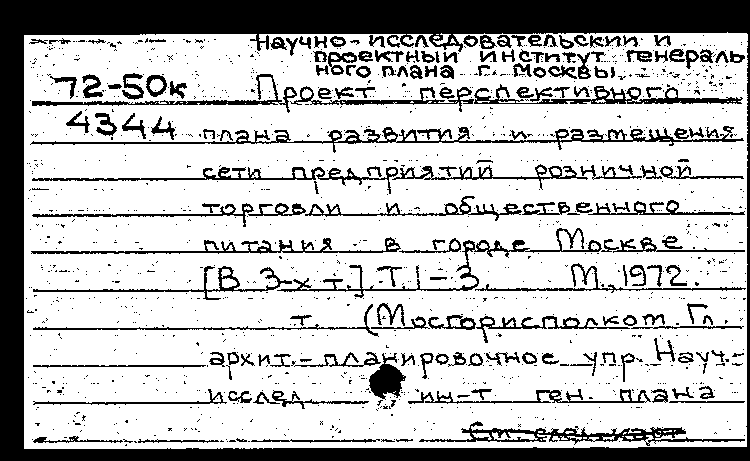 Научно-исследовательский и
проектный институт генераль
ного плана г. Москвы.
72-50к
Проект перспективного
4344
плана развития и размещения
сети предприятий розничной
торговли и общественного
питания в городе Москве
[В 3-х т.] Т.1-3. М., 1972.
т. (Мосгорисполком. Гл.
архит.-планировочное упр. Науч.-
исслед. ин-т ген. плана
См. след. карт